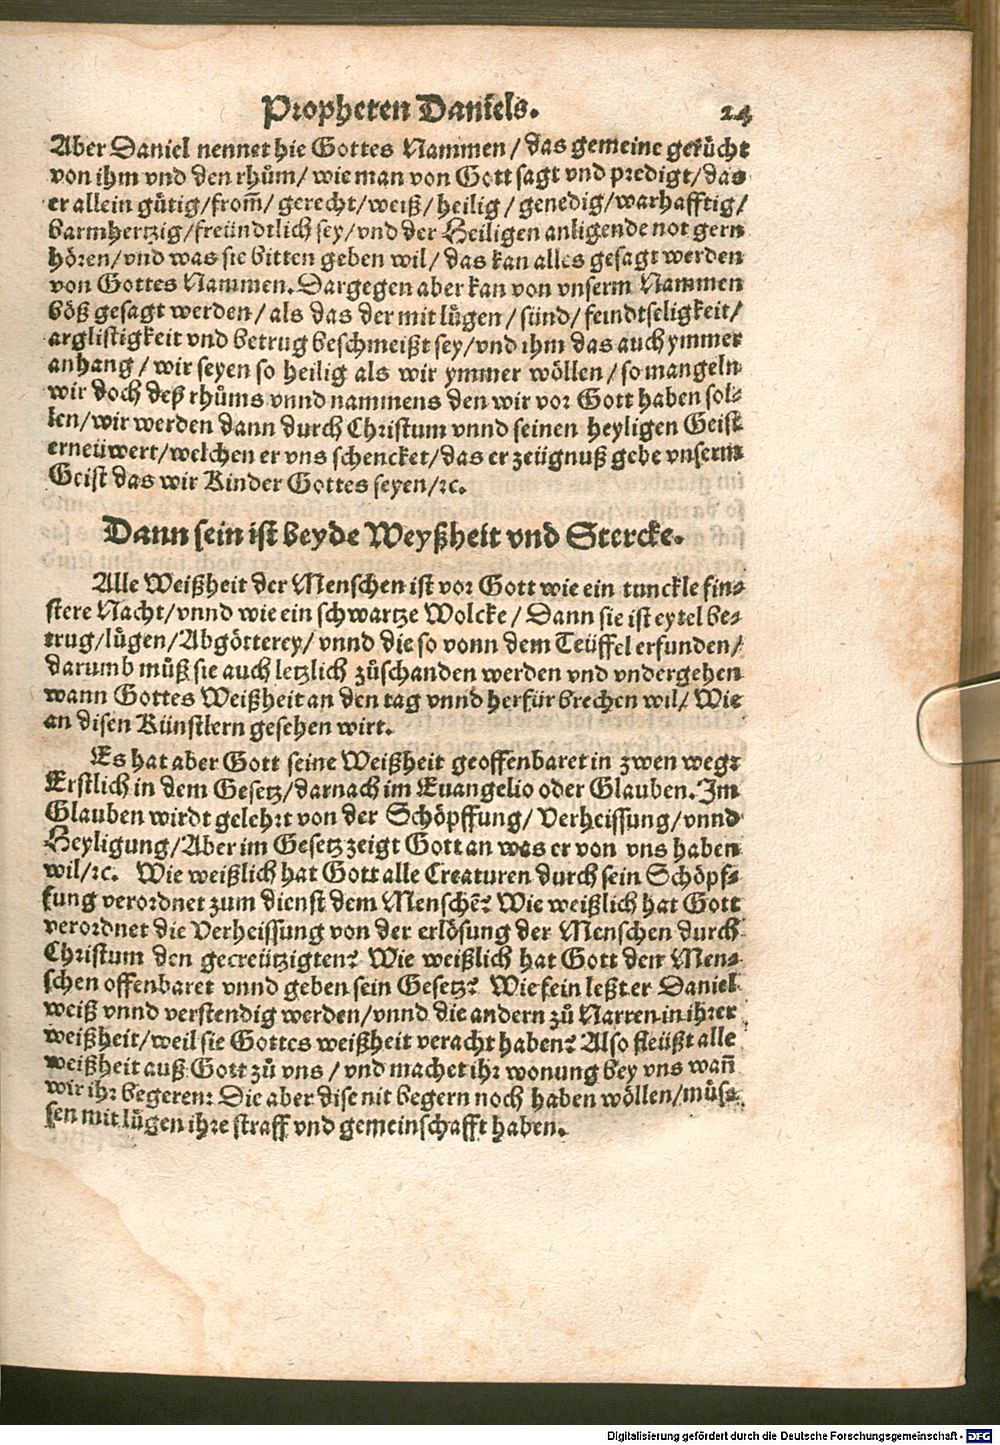 Propheten Daniels. 24
Aber Daniel nennet hie Gottes Nammen / das gemeine gerücht
von ihm vnd den rhům / wie man von Gott sagt vnd predigt / das
er allein gütig / from̃ / gerecht / weiß / heilig / genedig / warhafftig /
barmhertzig / freündtlich sey / vnd der Heiligen anligende not gern
hören / vnd was sie bitten geben wil / das kan alles gesagt werden
von Gottes Nammen. Dargegen aber kan von vnserm Nammen
böß gesagt werden / als das der mit lügen / sünd / feindtseligkeit /
arglistigkeit vnd betrug beschmeißt sey / vnd ihm das auch ymmer
anhang / wir seyen so heilig als wir ymmer wöllen / so mangeln
wir doch deß rhůms vnnd nammens den wir vor Gott haben sol-
len / wir werden dann durch Christum vnnd seinen heyligen Geist
erneüwert / welchen er vns schencket / das er zeügnuß gebe vnserm
Geist das wir Kinder Gottes seyen / ꝛc.
Dann sein ist beyde Weyßheit vnd Stercke.
Alle Weißheit der Menschen ist vor Gott wie ein tunckle fin-
stere Nacht / vnnd wie ein schwartze Wolcke / Dann sie ist eytel be-
trug / lügen / Abgötterey / vnnd die so vonn dem Teüffel erfunden /
darumb můß sie auch letzlich zůschanden werden vnd vndergehen
wann Gottes Weißheit an den tag vnnd herfür brechen wil / Wie
an disen Künstlern gesehen wirt.
Es hat aber Gott seine Weißheit geoffenbaret in zwen weg:
Erstlich in dem Gesetz / darnach im Euangelio oder Glauben. Im
Glauben wirdt gelehrt von der Schöpffung / Verheissung / vnnd
Heyligung / Aber im Gesetz zeigt Gott an was er von vns haben
wil / ꝛc. Wie weißlich hat Gott alle Creaturen durch sein Schöpf-
fung verordnet zum dienst dem Menschẽ? Wie weißlich hat Gott
verordnet die Verheissung von der erlösung der Menschen durch
Christum den gecreützigten? Wie weißlich hat Gott den Men-
schen offenbaret vnnd geben sein Gesetz? Wie fein leßt er Daniel
weiß vnnd verstendig werden / vnnd die andern zů Narren in ihrer
weißheit / weil sie Gottes weißheit veracht haben? Also fleüßt alle
weißheit auß Gott zů vns / vnd machet ihr wonung bey vns wañ
wir ihr begeren: Die aber dise nit begern noch haben wöllen / müs-
sen mit lügen ihre straff vnd gemeinschafft haben.
Digitalisierung gefördert durch die Deutsche Forschungsgemeinschaft - DFG